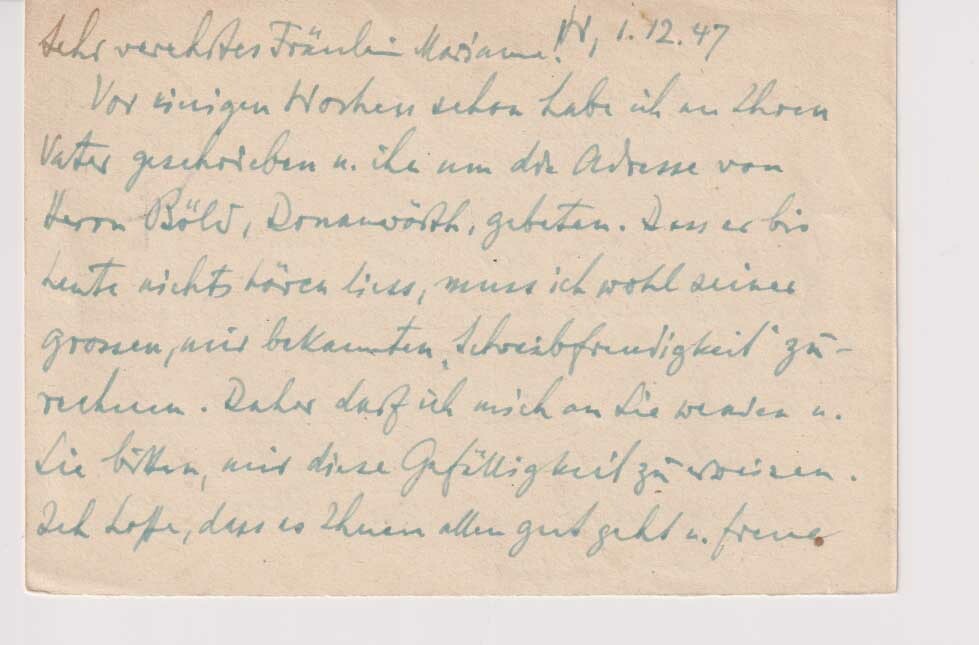 W, 1.12.47
Sehr verehrtes Fräulein Marianne!
Vor einigen Wochen schon habe ich an Ihren
Vater geschrieben u. ihn um die Adresse von
Herrn Böld, Donauwörth, gebeten. Dass er bis
heute nichts hören liess, muss ich wohl seiner
grossen, mir bekannten „Schreibfreudigkeit“ zu-
rechnen. Daher darf ich mich an Sie wenden u.
Sie bitten, mir diese Gefälligkeit zu erweisen.
Ich hoffe, dass es Ihnen allen gut geht u. freue